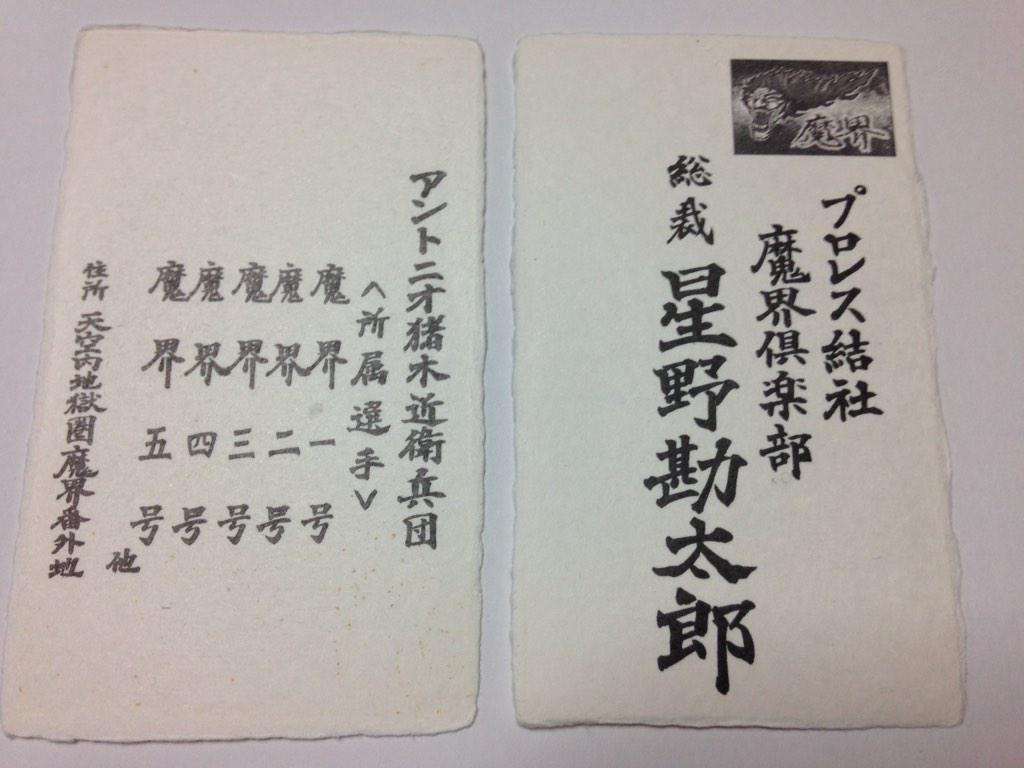 魔界
プロレス結社
魔界倶楽部
総裁 星野勘太郎
アントニオ猪木近衛兵団
<所属選手>
魔界一号
魔界二号
魔界三号
魔界四号
魔界五号
他
住所 天空内地獄圏魔界番外地